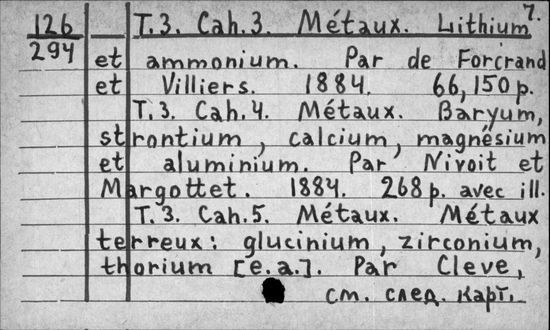 7.
126 T.3. Cah.3. Métaux. Lithium
294 et ammonium. Par de Forcrand
et Villiers. 1884. 66,150 p.
T.3. Cah.4. Métaux. Baryum,
strontium, calcium, magnésium
et aluminium. Par Nivoit et
Margottet. 1884. 268 p. avec ill.
T.3. Cah.5. Métaux. Métaux
terreux: glucinium, zirconium,
thorium [e.a.]. Par Cleve,
см. след. карт.